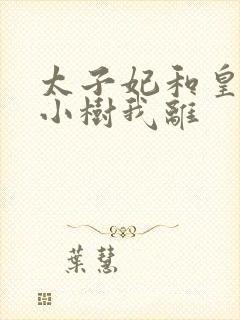 太子妃和皇
小樹我離
葉慧